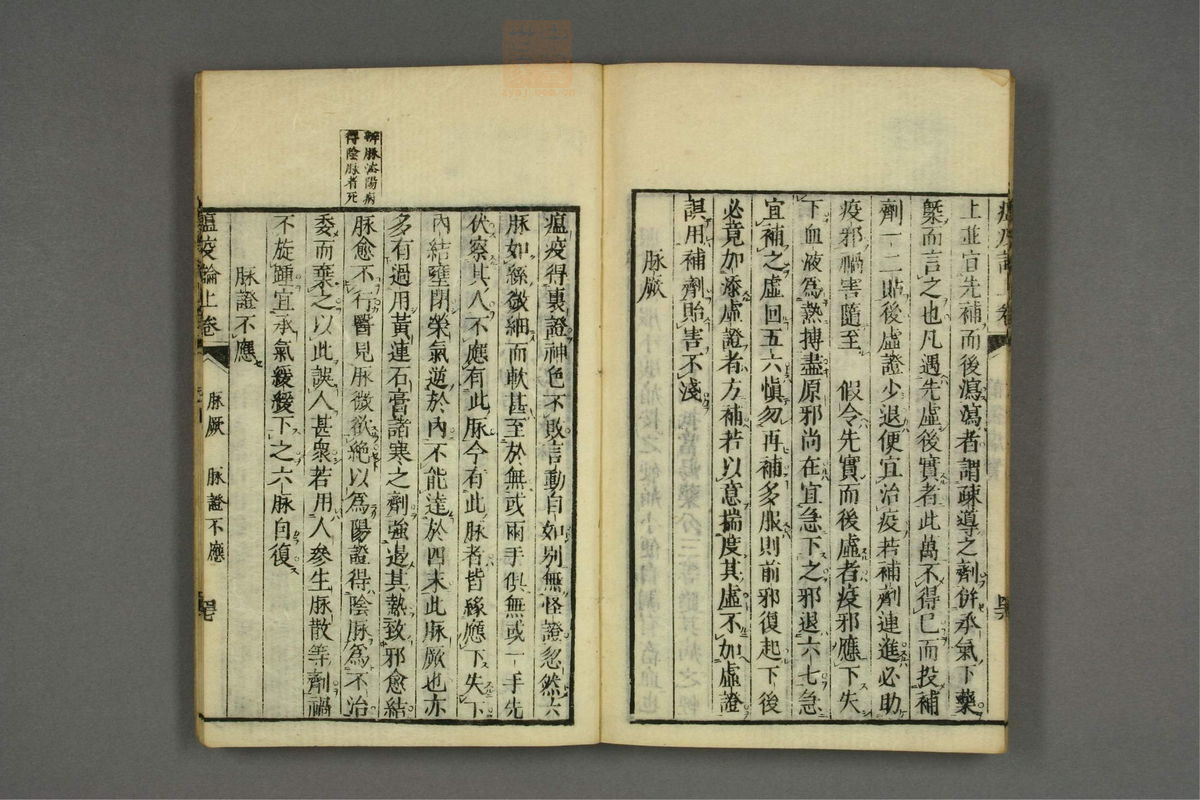 上並宜先補而後瀉瀉者謂疎導之劑併承氣下藥
槩而言之也凡遇先虛後實者此萬不得已而投補
劑一二貼後虛證少退便宜治疫若補劑連進必助
疫邪禍害隨至　假令先實而後虛者疫邪應下失
下血液為熱搏盡原邪尚在宜急下之邪退六七急
宜補之虛回五六慎勿再補多服則前邪復起下後
必竟加添虛證者方補若以意揣度其虛不加虛證
誤用補劑貽害不淺
脉厥
瘟疫得裏證神色不敗言動自如別無怪證忽然六
脉如絲微細而軟甚至於無或兩手俱無或一手先
伏察其人不應有此脉今有此脉者皆緣應下失下
內結壅閉榮氣逆於內不能達於四末此脉厥也亦
多有過用黃連石膏諸寒之劑強遏其熱致邪愈結
脉愈不行醫見脉微欲絕以為陽證得陰脉為不治
委而棄之以此誤人甚衆若用人參生脉散等劑禍
不旋踵宜承氣緩緩下之六脉自復
脉證不應
辨脉法陽病
得陰脉者死
瘟疫論上卷
脉厥　脉證不應